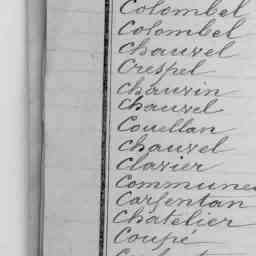 Colombel
Colombel
Chauvel
Crespel
Chauvin
Chauvel
Couellan
Chauvel
Clavier
Commune
Carfentan
Chatelier
Coupé